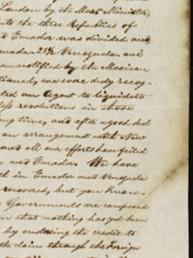 London by the Mexn Minister,
to the three Republics of
Ecuador was divided and
Venezuela, and
notified by the Mexican
we were duly recog-
our Agent to liquidate
less revolutions in those
ing times, and after a good deal
an arrangement with New
and all our efforts have failed
and Ecuador. We have
th in Ecuador and Venezuela
recovered, but you know
Governments are composed
that nothing has yet been
by endorsing the credit to
the claim through the Foreign